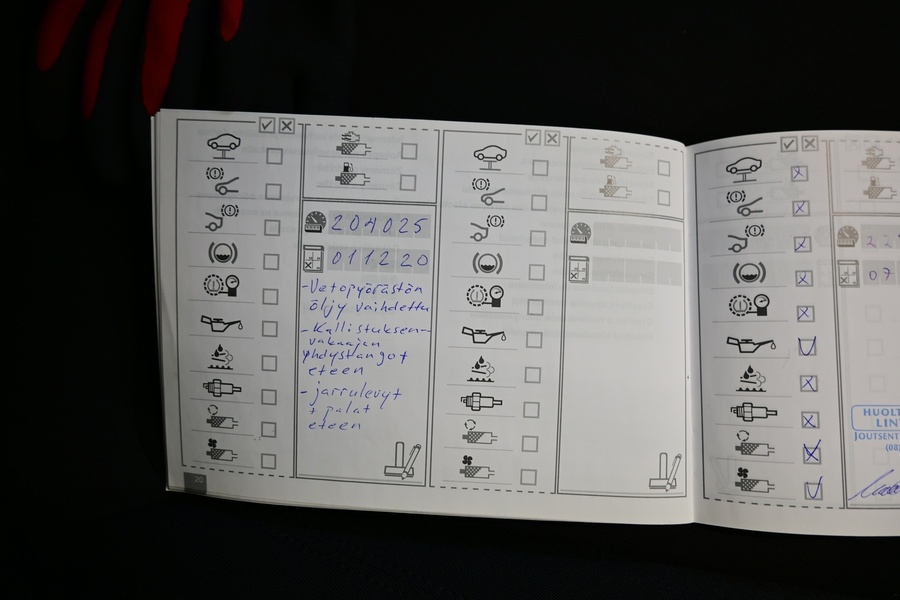 204025
011220
-Vetopyörästön
öljy vaihdettu
-Kallistuksen-
vakaajan
yhdystangot
eteen
-jarrulevyt
+ palat
eteen
20
22
07
HUOLT
LIN
JOUTSENT
(08)